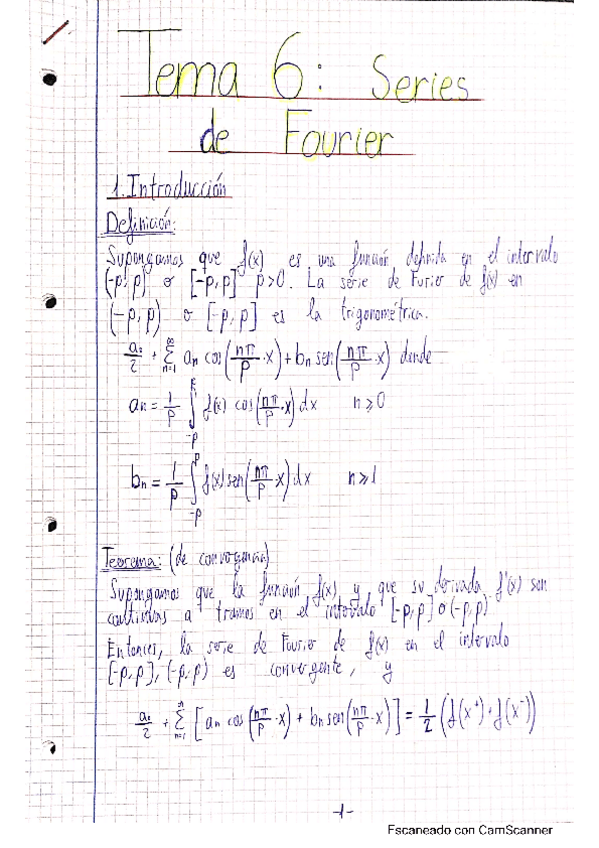 Tema 6: Series
de Fourier
1. Introducción
Definición:
Supongamos que f(x) es una función definida en el intervalo
(-p, p) o [-p, p] p>0. La serie de Furier de f(x) en
(-p, p) o [-p, p] es la trigonométrica.
a₀/2 + ∑_{n=1}^{∞} aₙ cos(nπ/p · x) + bₙ sen(nπ/p · x) donde
aₙ = 1/p ∫_{-p}^{p} f(x) cos(nπ/p · x) dx n ≥ 0
bₙ = 1/p ∫_{-p}^{p} f(x) sen(nπ/p · x) dx n ≥ 1
Teorema: (de convergencia)
Supongamos que la función f(x) y que su derivada f'(x) son
continuas a tramos en el intervalo [-p, p] o (-p, p).
Entonces, la serie de Fourier de f(x) en el intervalo
[-p, p], (-p, p) es convergente, y
a₀/2 + ∑_{n=1}^{n} [aₙ cos(nπ/p · x) + bₙ sen(nπ/p · x)] = 1/2 (f(x⁺) + f(x⁻))
-1-
Escaneado con CamScanner